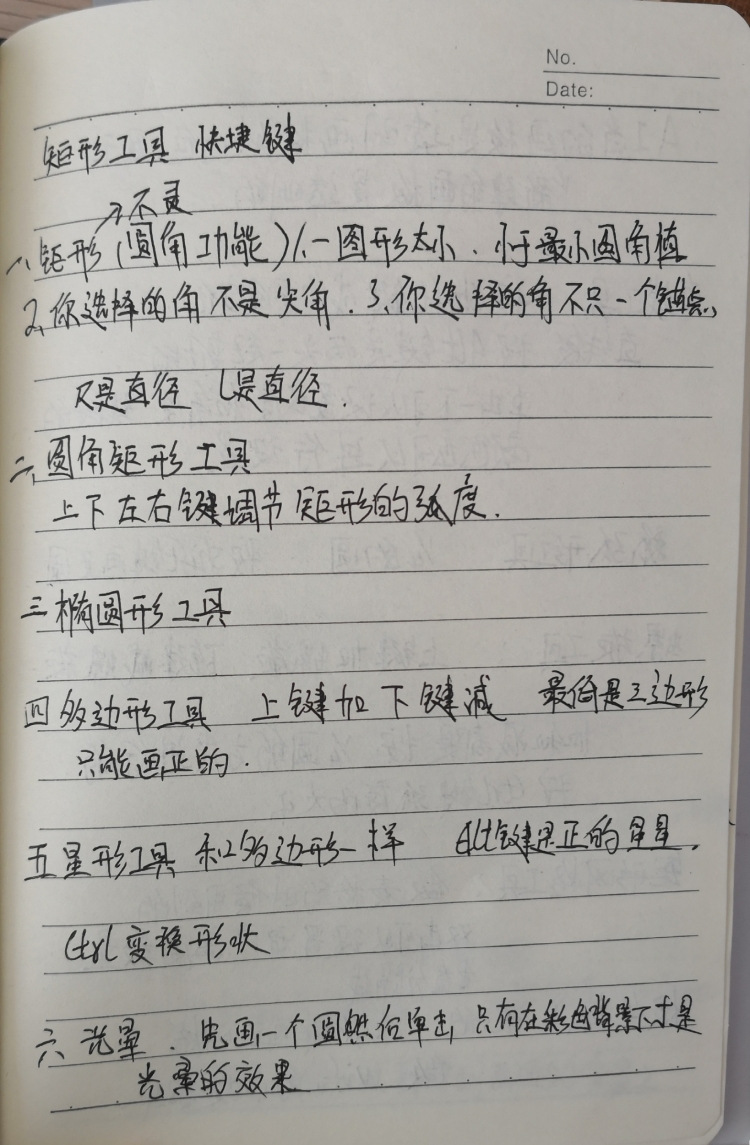 No.
Date:
矩形工具 快捷键
→不灵
一、矩形(圆角功能)1、一图形太小、小于最小圆角值
2、你选择的角不是尖角. 3、你选择的角不只一个锚点、
R是直径 L是直径.
二、圆角矩形工具
上下左右键调节矩形的弧度.
三、椭圆形工具
四 多边形工具 上键加 下键减 最低是三边形
只能画正的.
五星形工具 和多边形一样 Alt键是正的星星.
Ctrl变换形状
六 光晕. 先画一个圆然后单击, 只有在彩色背景下才是
光晕的效果